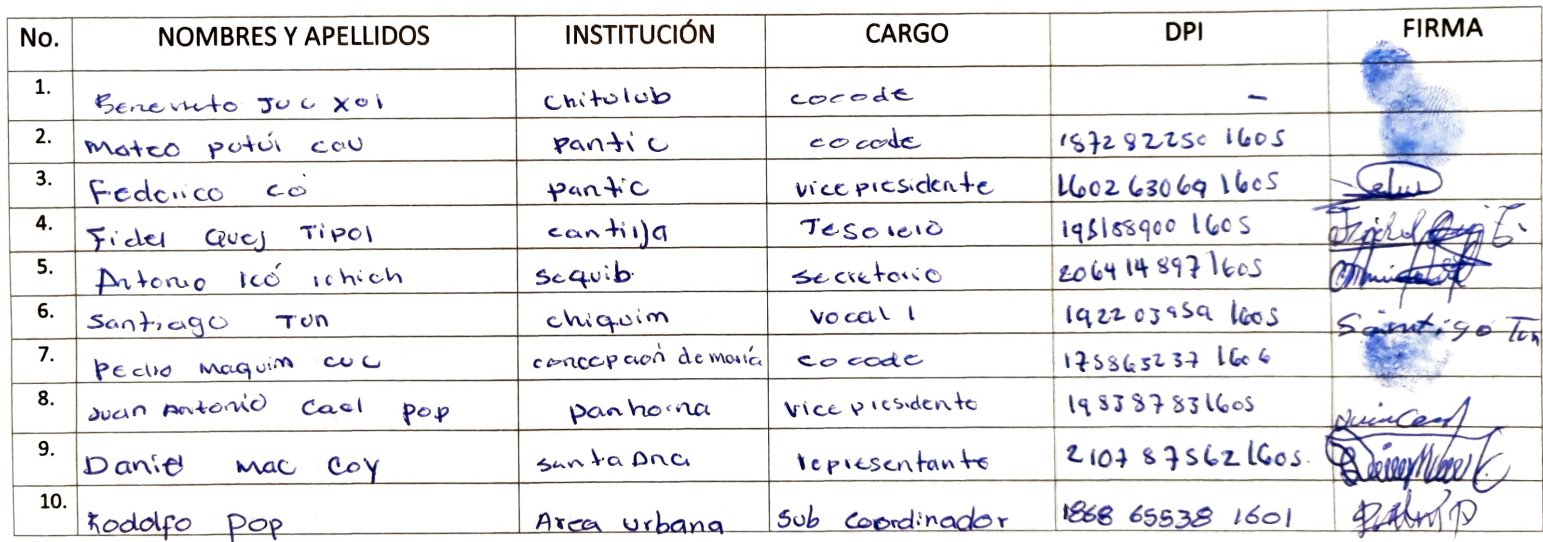 No. NOMBRES Y APELLIDOS INSTITUCIÓN CARGO DPI FIRMA
1. Benevicto Juc Xol chitulub cocode -
2. Mateo putuí cau pantic cocode 187282250 1605
3. Federico có pantic vicepresidente 160263069 1605
4. Fidel Quej Tipol cantilJa Tesorero 195158900 1605
5. Antonio Icó ichich sequib. secretario 206414897 1605
6. Santiago Tun chiquim vocal 1 192203959 1605 Santigo Tun
7. Pedro Maquim cuc concepción de maría cocode 175865237 1606
8. Juan Antonio Caal pop panhorna vicepresidente 19838783 1605
9. Daniel Mac Coy santa Ana representante 210787562 1605.
10. Rodolfo Pop Area urbana Sub Coordinador 1868 65538 1601